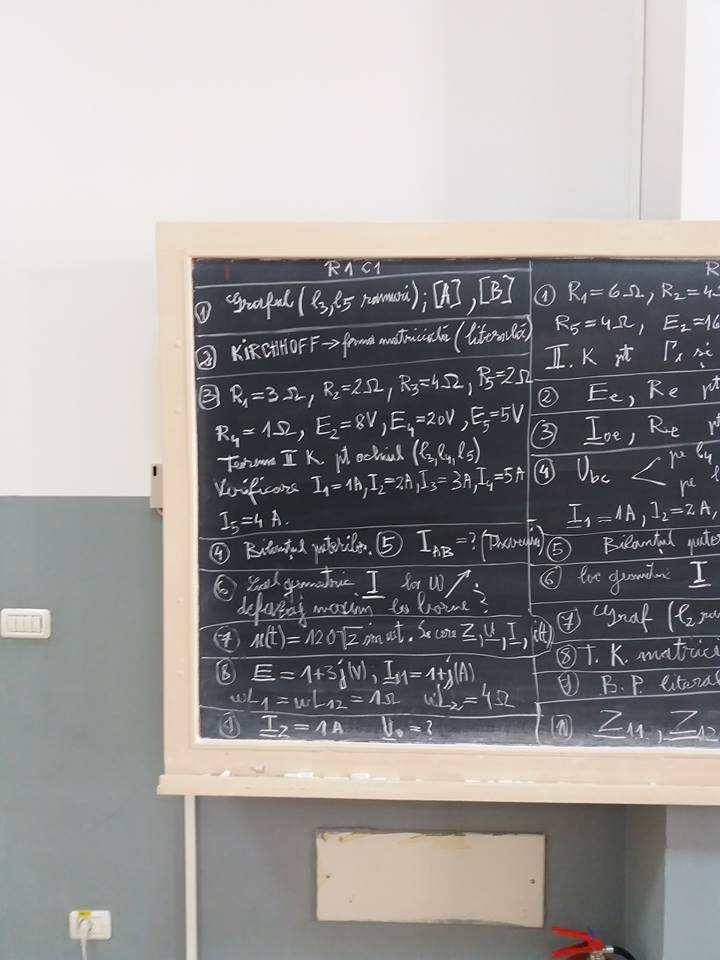 R1 C1
① Graful (l3, l5 ramură); [A], [B]
② KIRCHHOFF → forma matricială (literală)
③ R1=3Ω, R2=2Ω, R3=4Ω, R5=2Ω
R4=1Ω, E2=8V, E4=20V, E5=5V
Teorema II K. pt ochiul (l3, l4, l5)
Verificare I1=1A, I2=2A, I3=3A, I4=5A
I5=4A.
④ Bilanțul puterilor. ⑤ IAB=? (Thevenin)
⑥ Locul geometric I la ω ↗.
defazaj maxim la borne?
⑦ u(t)=120√2 sin ωt. Se cere Z, U, I, i(t)
⑧ E=1+3j(V); =1+j(A)
ωL1=ωL12=1Ω ωL2=4Ω
⑨ I2=1A =?
R
① R1=6Ω, R2=4Ω
R5=4Ω, E2=16
II. K pt și
② Ee, Re pt
③ Ioe, Re pt
④ Ubc < pe l4
pe l
I1=1A, I2=2A,
⑤ Bilanțul puter
⑥ loc geometric I
⑦ Graf (l2 ramur
⑧ T. K. matrice
⑨ B.P literal
⑩ Z11, Z12